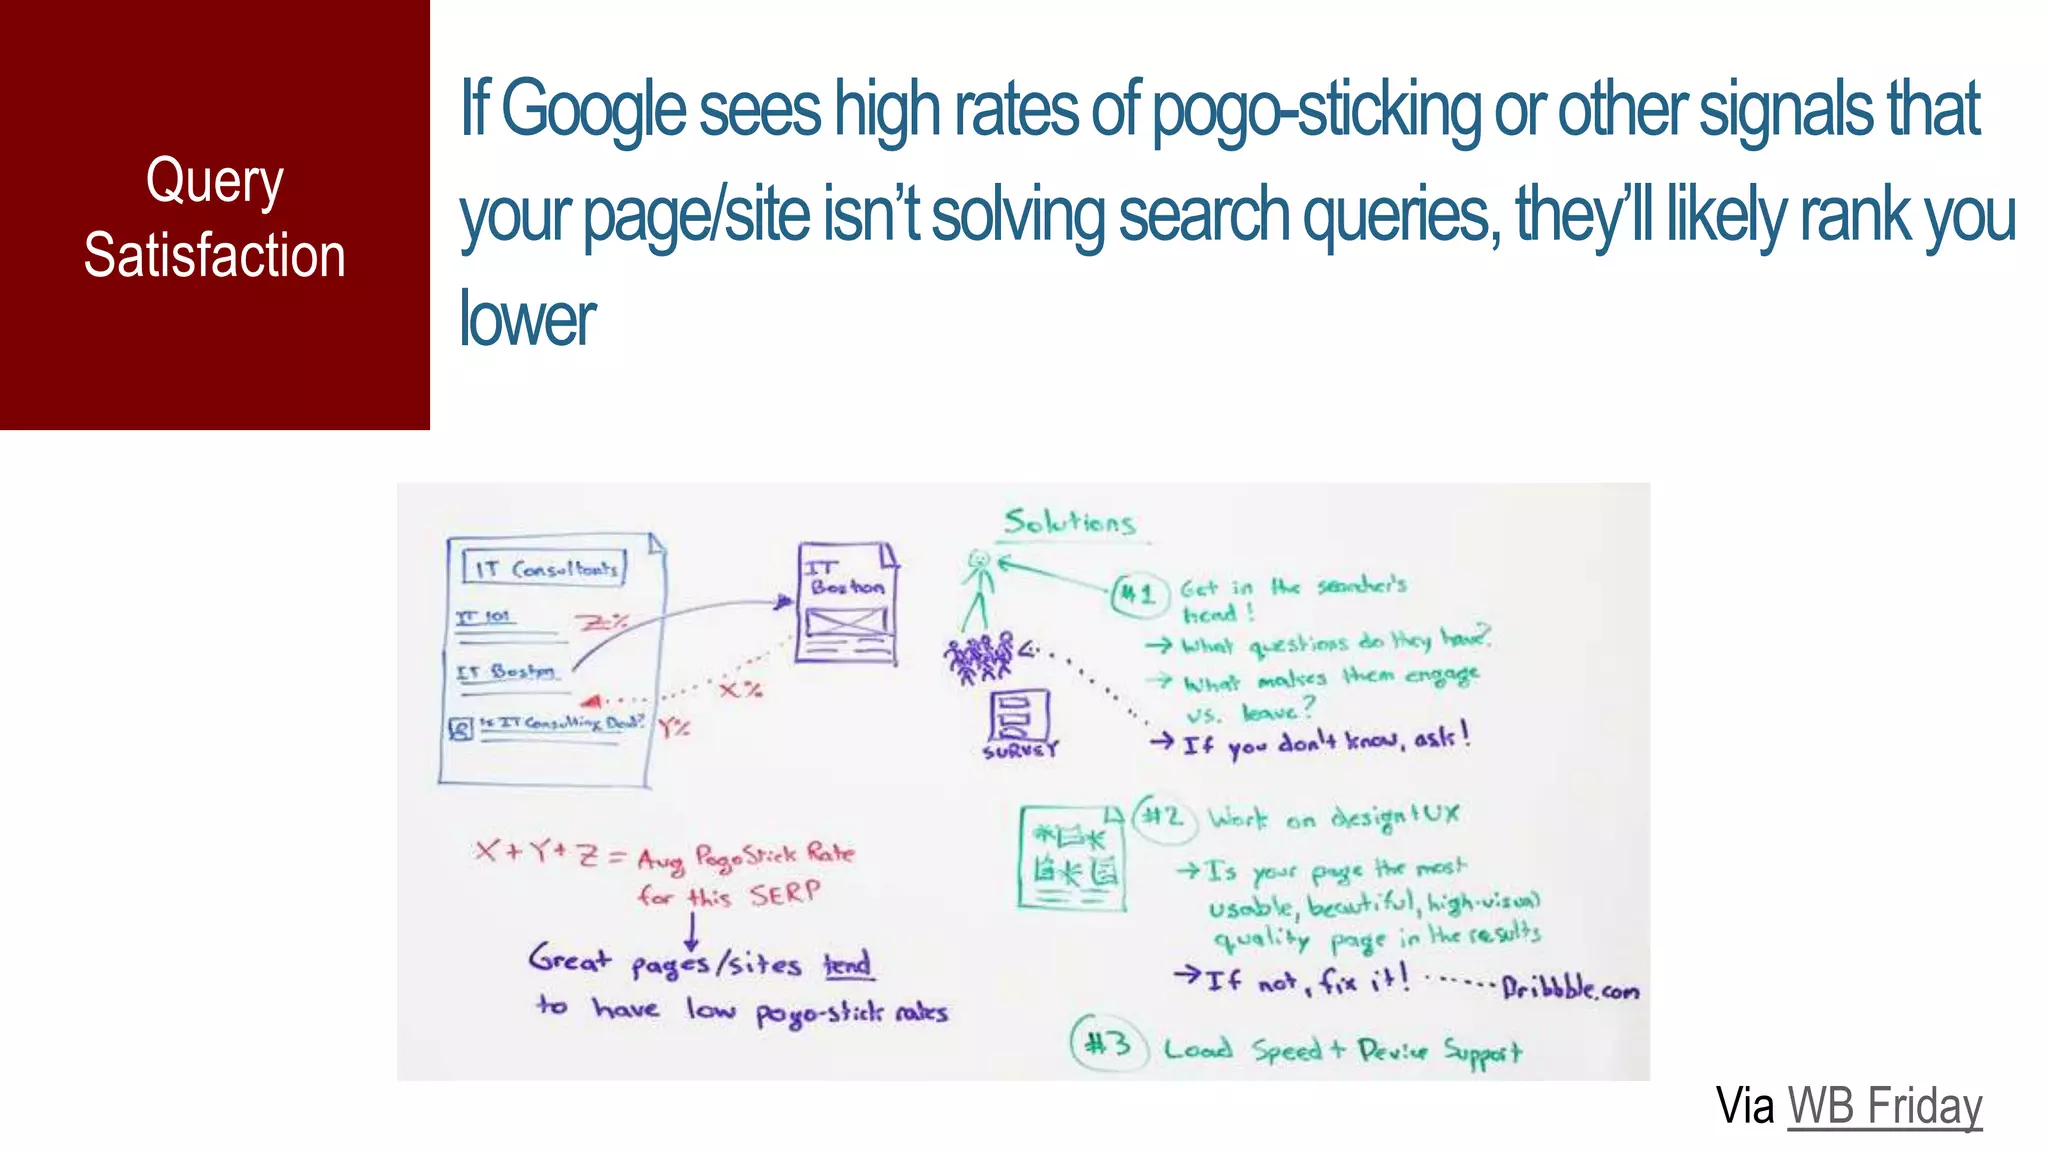 Query
Satisfaction
If Google sees high rates of pogo-sticking or other signals that
your page/site isn’t solving search queries, they’ll likely rank you
lower
IT Consultants
IT 101
Z%
IT Boston
Is IT Consulting Dead?
Y%
X%
IT
Boston
X+Y+Z = Avg PogoStick Rate
for this SERP
Great pages/sites tend
to have low pogo-stick rates
Solutions
#1 Get in the searcher's
head!
→ What questions do they have?
→ What makes them engage
vs. leave?
→ If you don't know, ask!
SURVEY
#2 Work on design+UX
→ Is your page the most
usable, beautiful, high-visual
quality page in the results
→ If not, fix it! ...... Dribbble.com
#3 Load Speed + Device Support
Via WB Friday